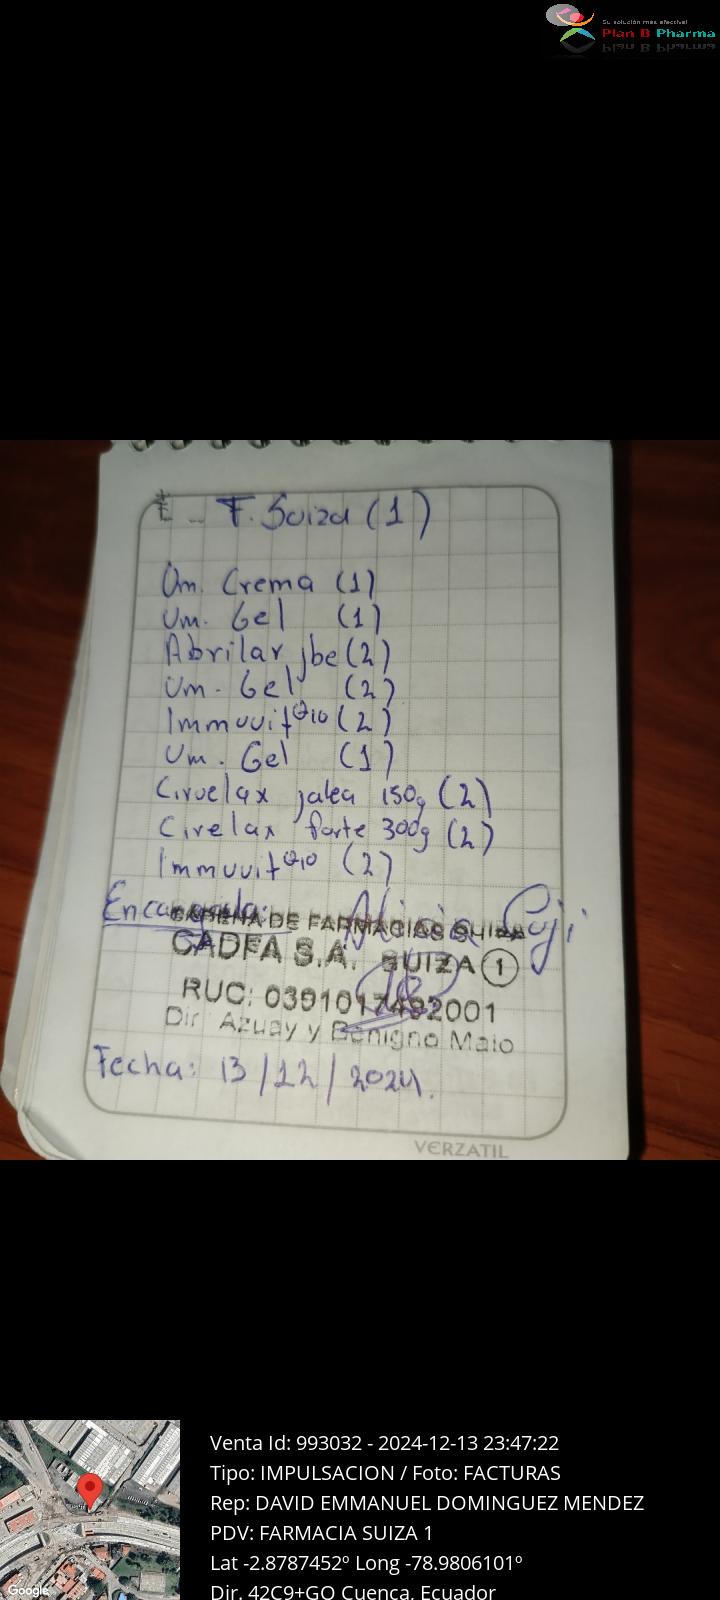 Su solución más efectiva!
Plan B Pharma
F. Suiza (1)
Um. Crema (1)
Um. Gel (1)
Abrilar jbe (2)
Um. Gel (2)
Immuvit Q10 (2)
Um. Gel (1)
Ciruelax jalea 150g (2)
Cirelax forte 300g (2)
Immuvit Q10 (2)
Encargada: Alicia Coji
CADENA DE FARMACIAS SUIZA
CADFA S.A. SUIZA 1
RUC: 0391017492001
Dir: Azuay y Benigno Malo
Fecha: 13/12/2024.
VERZATIL
Venta Id: 993032 - 2024-12-13 23:47:22
Tipo: IMPULSACION / Foto: FACTURAS
Rep: DAVID EMMANUEL DOMINGUEZ MENDEZ
PDV: FARMACIA SUIZA 1
Lat -2.8787452º Long -78.9806101º
Dir. 42C9+GQ Cuenca, Ecuador
Google